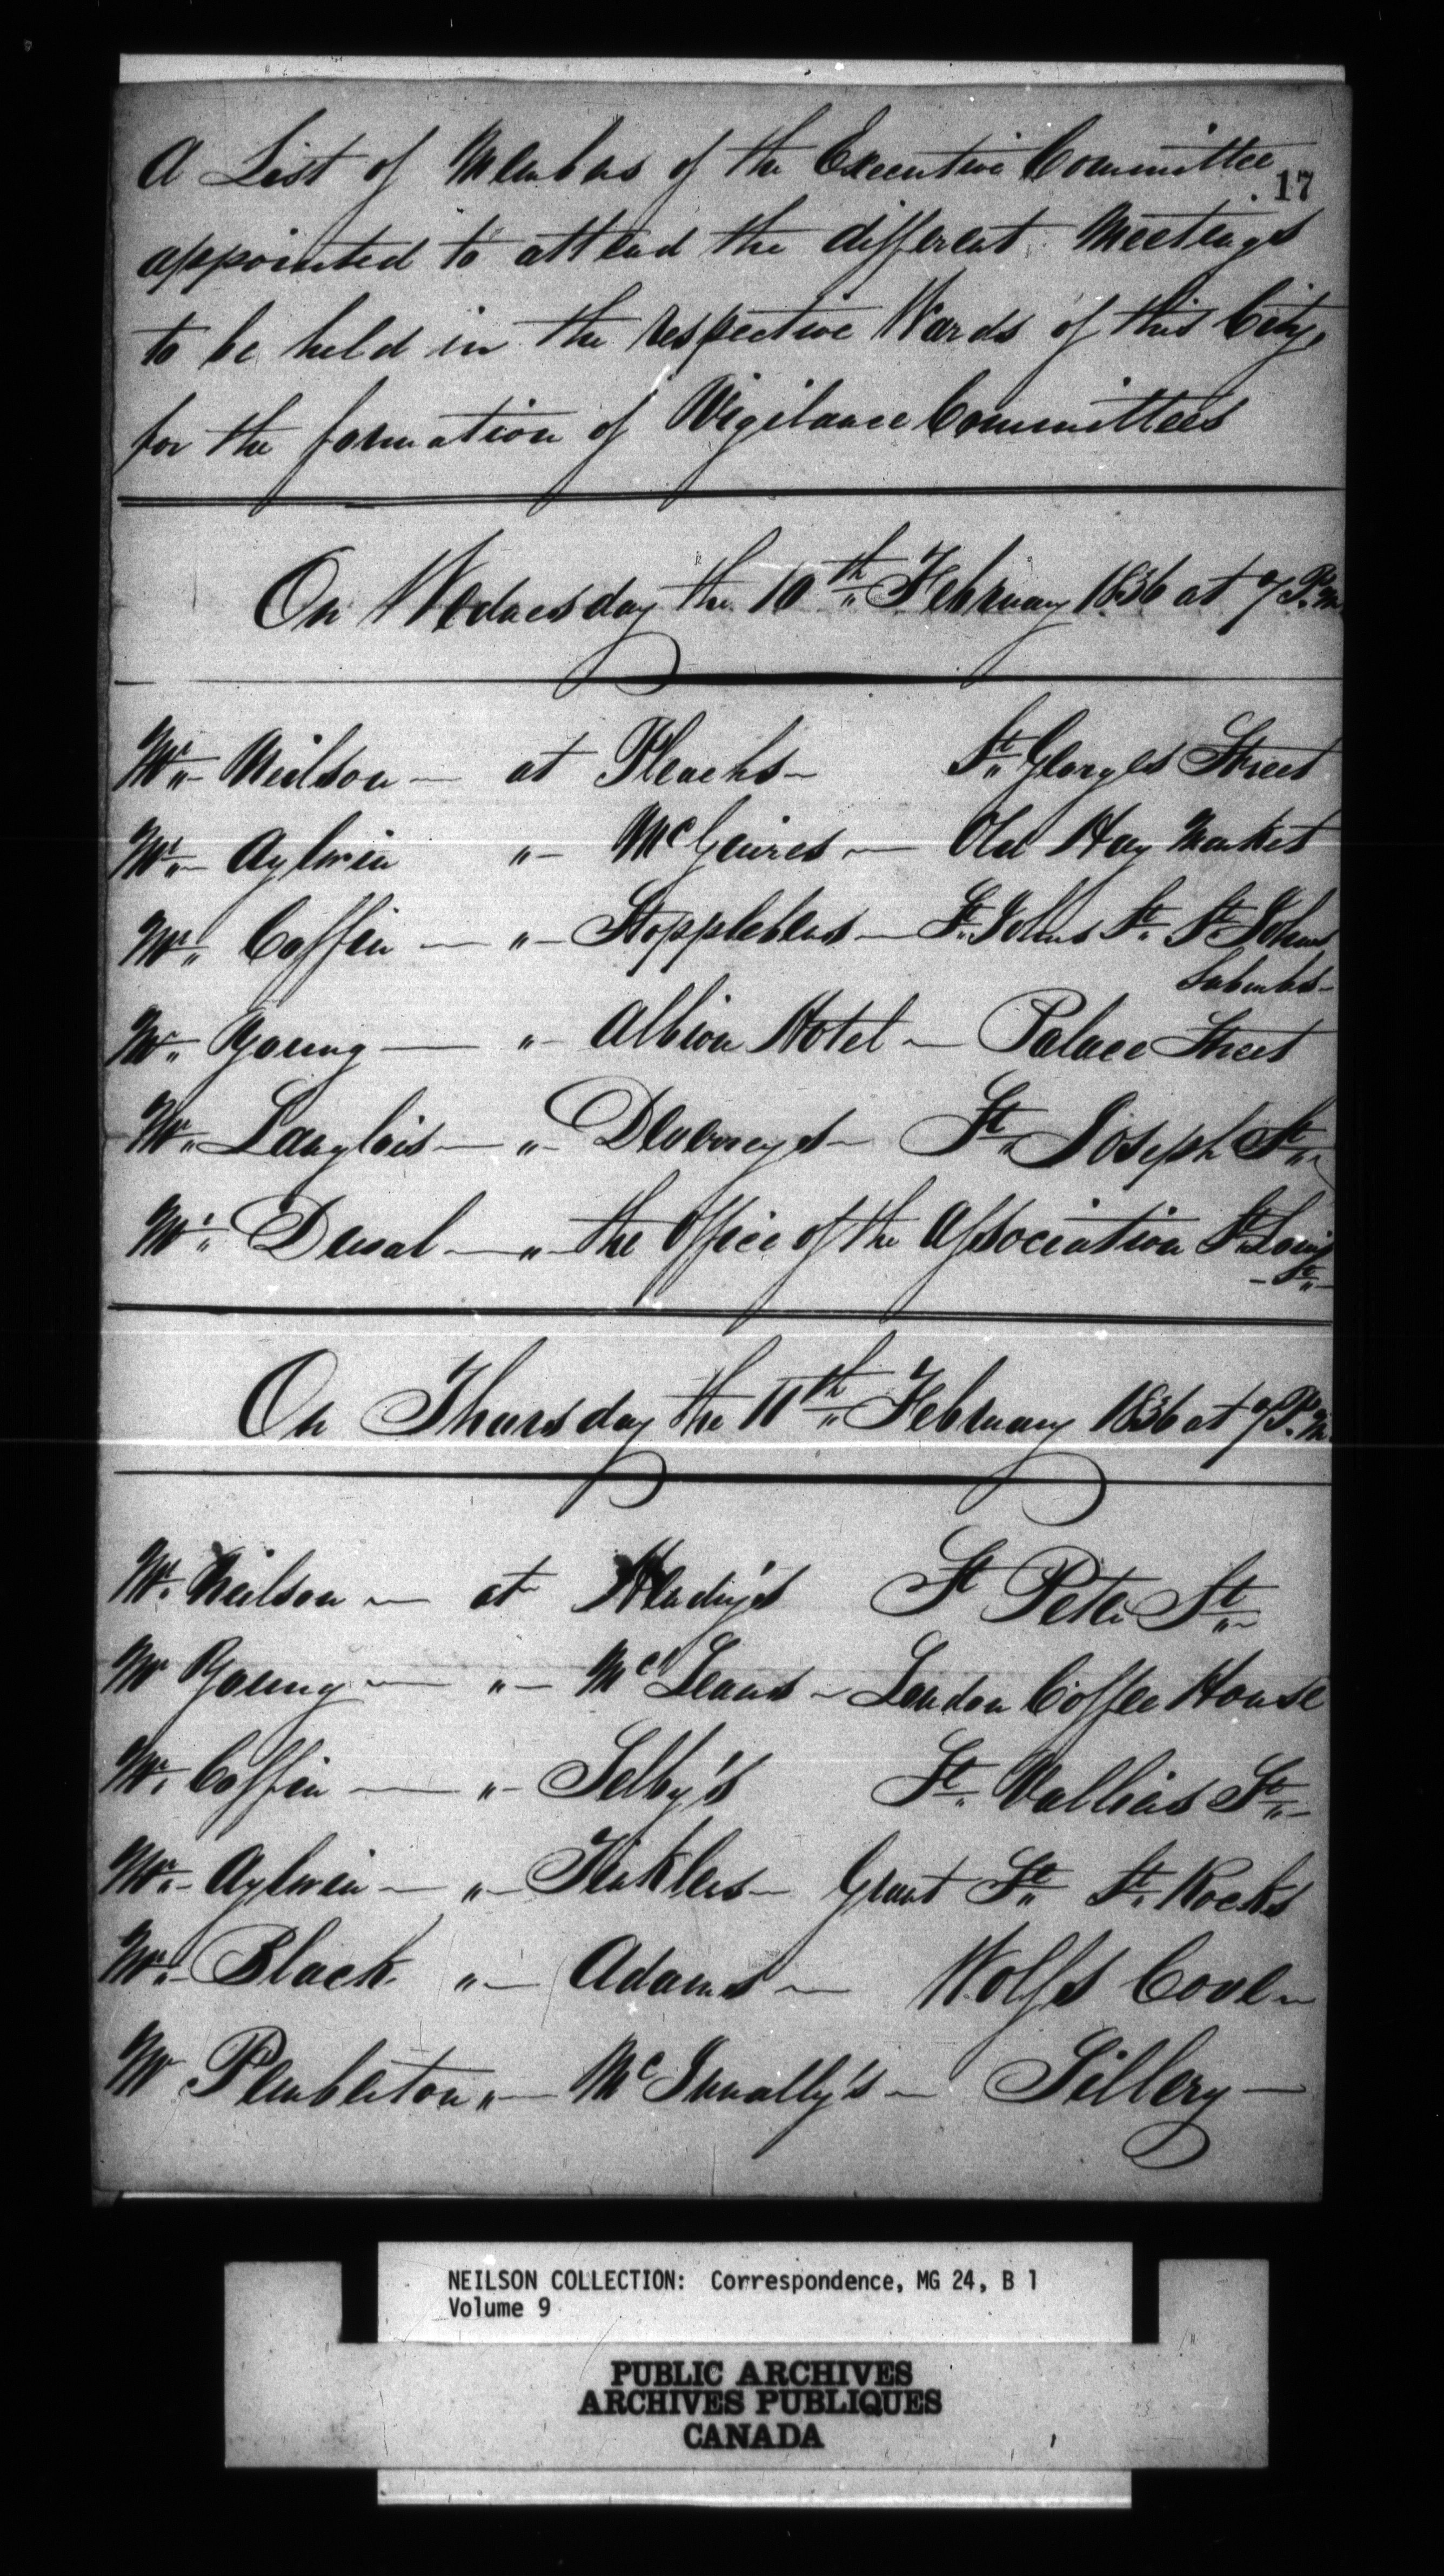 A List of Members of the Executive Committee
17
appointed to attend the different Meetings
to be held in the respective Wards of this City,
for the formation of Vigilance Committees
On Wednesday the 10th February 1836 at 7 P.M
Mr Neilson — at Pleachs — St Georges Street
Mr Aylwin " — McGuires — Old Hay Market
Mr Coffin — " — Stopplebens — St Johns St St Johns
Suburbs —
Mr Young — " — Albion Hotel — Palace Street
Mr Langlois — " — St Joseph St
Mr Duval — " — the Office of the Association St Louis
— St —
On Thursday the 11th February 1836 at 7 P.M.
Mr Neilson — at St Peter St
Mr Young — " — McLeans — London Coffee House
Mr Coffin — " — Selby's St Valliers St —
Mr Aylwin — " — Tinklers — Grant St St Rocks
Mr Black " — Adams — Wolfs Cove —
Mr Pemberton " — McInnally's — Sillery —
NEILSON COLLECTION: Correspondence, MG 24, B 1
Volume 9
PUBLIC ARCHIVES
ARCHIVES PUBLIQUES
CANADA